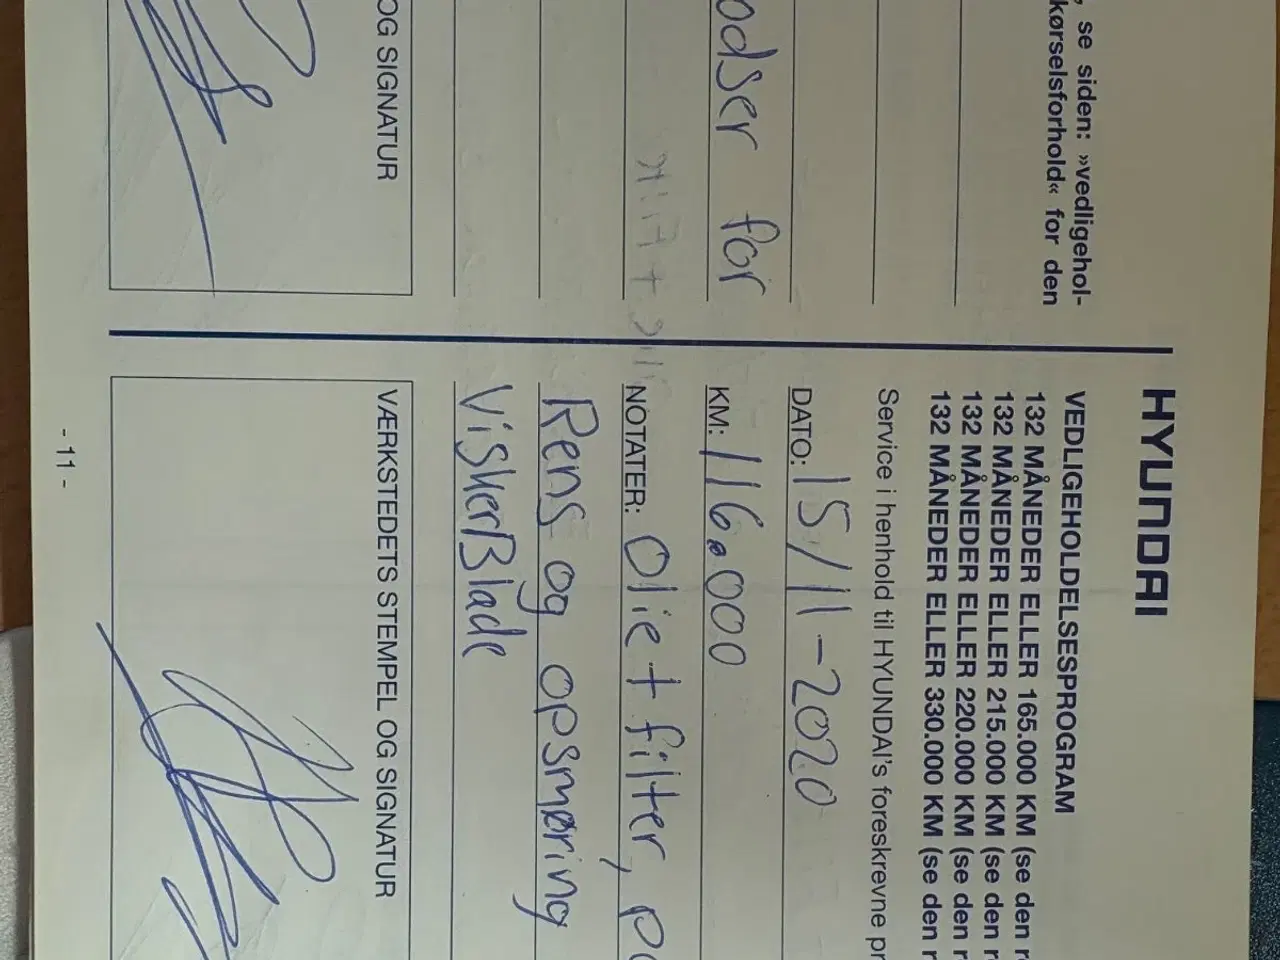 , se siden: »vedligehol-
kørselsforhold« for den
odser for
OG SIGNATUR
HYUNDAI
VEDLIGEHOLDELSESPROGRAM
132 MÅNEDER ELLER 165.000 KM (se den r
132 MÅNEDER ELLER 215.000 KM (se den r
132 MÅNEDER ELLER 220.000 KM (se den r
132 MÅNEDER ELLER 330.000 KM (se den r
Service i henhold til HYUNDAI's foreskrevne pr
DATO: 15/11-2020
KM: 116.000
NOTATER: Olie + filter,
Rens og opsmøring
ViskerBlade
VÆRKSTEDETS STEMPEL OG SIGNATUR
- 11 -